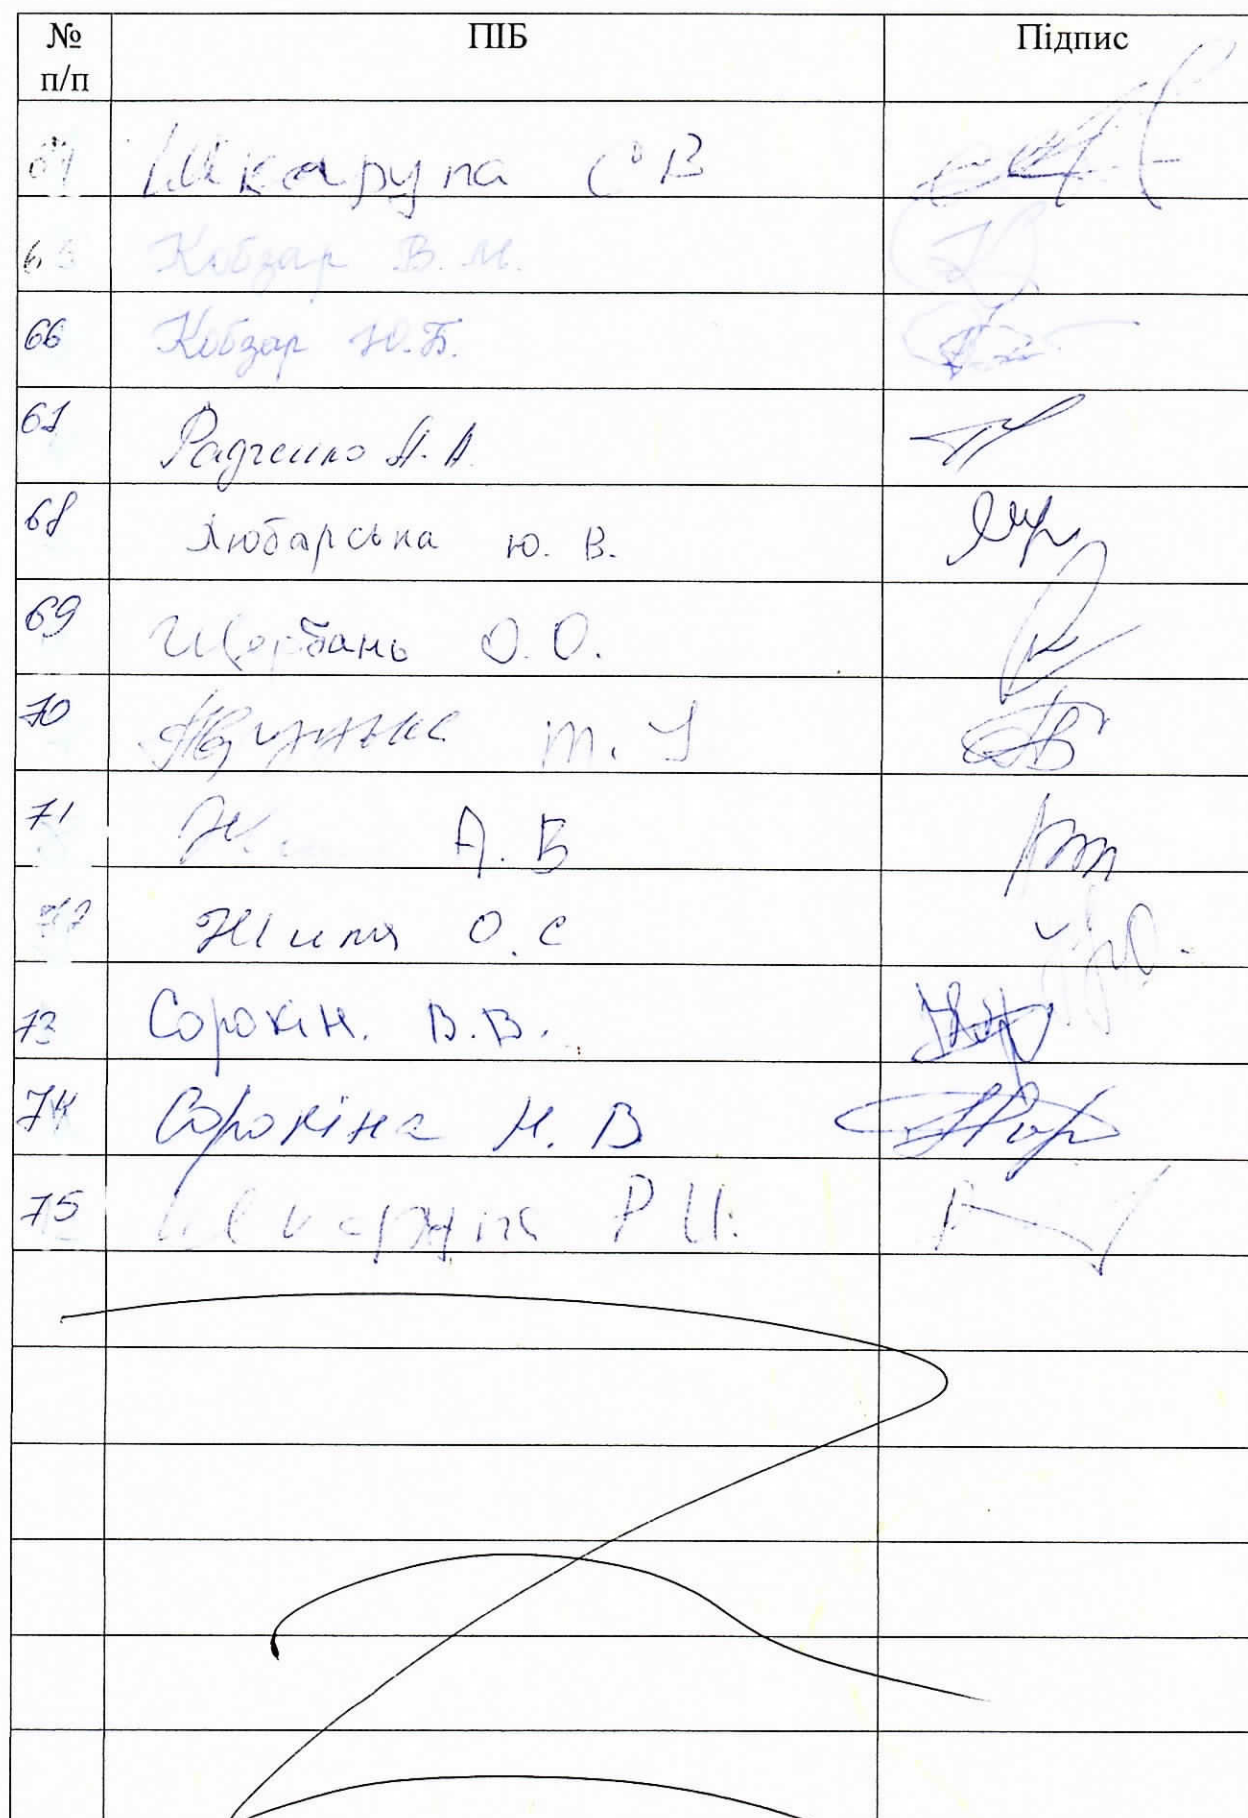 № п/п ПІБ Підпис
64 Шкарупа С В
65 Кобзар В. М.
66 Кобзар Ю.Б.
67 Радченко А. А.
68 Любарська Ю. В.
69 Щербань О. О.
70 Т. І
71 А. Б
72 О. С
73 Сорокін. В.В.
74 Сорокіна Н. В
75 Шкарупа Р И.